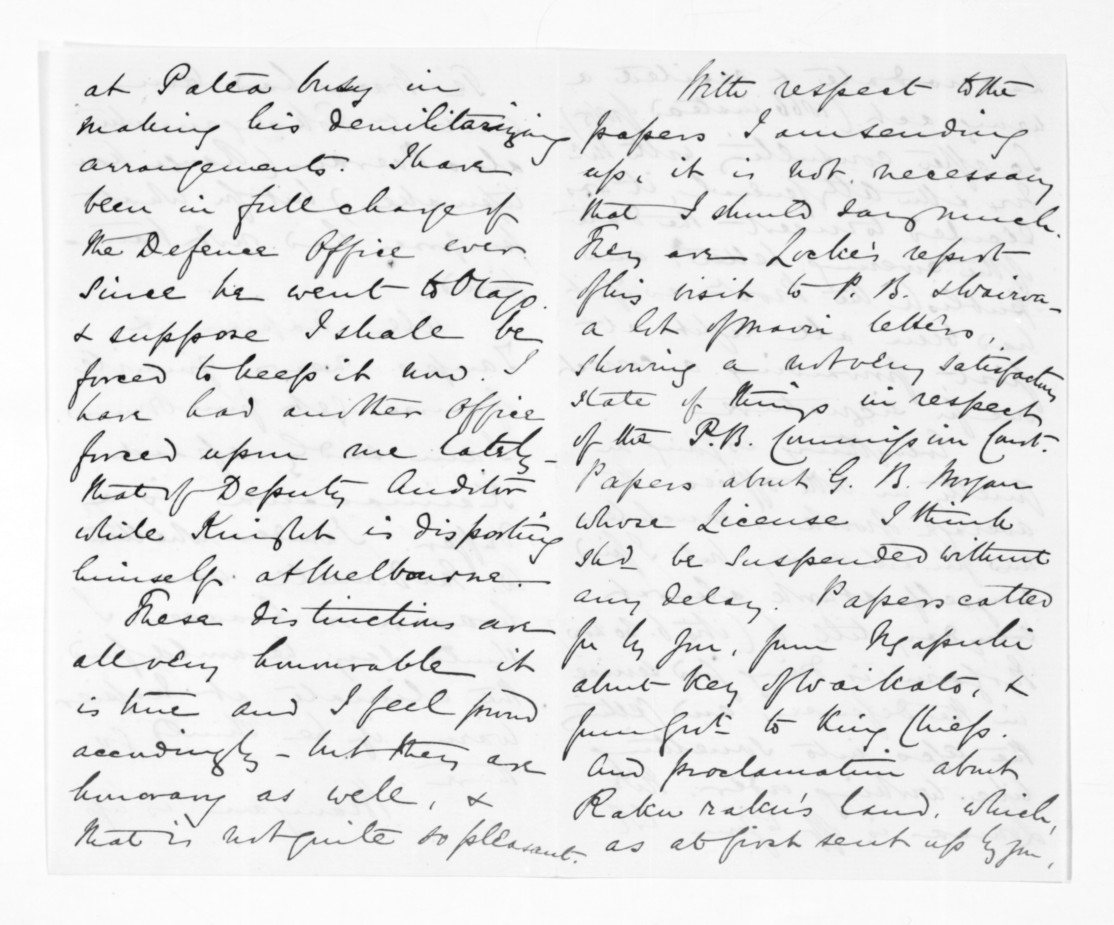 at Patea busy in
making his demilitarizing
arrangements. I have
been in full charge of
the Defence Office ever
since he went to Otago.
& suppose I shall be
forced to keep it now. I
have had another office
forced upon me lately –
that of Deputy Auditor
while Knight is disporting
himself at Melbourne. –
These distinctions are
all very honourable it
is true and I feel proud
accordingly – but they are
honorary as well, &
that is not quite so pleasant.
With respect to the
papers I am sending
up, it is not necessary
that I should say much.
They are Locke's report
of his visit to P. B. & Wairoa –
a lot of Maori letters,
showing a not very satisfactory
state of things in respect
of the P.B. Commission Court.
Papers about G. B.
whose License I think
shd be suspended without
any delay. Papers called
for by you, from Ngapuhi
about Key of Waikato, &
from Govt to King Chiefs.
And proclamation about
Rakuraku's land, which,
as at first sent up by you,